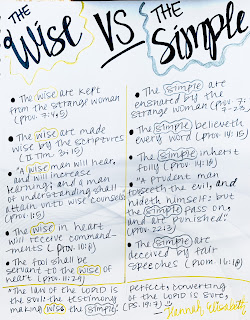 THE
Wise
VS
THE
Simple
• The wise are kept
from the strange woman
(Prov. 7:4,5)
• The wise are made
wise by the scriptures
(II Tim. 3:15)
• "A wise man will hear,
and will increase
learning; and a man
of understanding shall
attain unto wise counsels"
(Prov. 1:5)
• The wise in heart
will receive command-
ments (Prov. 10:8)
• The fool shall be
servant to the wise of
heart. (Prov. 11:29)
• The are
ensnared by the
strange woman (Prov. 7:
• The simple believeth
every word (Prov. 14:15)
• The simple inherit
folly (Prov. 14:18)
• "A prudent man
forseeth the evil, and
hideth himself: but
the simple pass on,
and are punished."
(Prov. 22:3)
• The simple are
deceived by fair
speeches (Rom. 16:18)
*The law of the LORD is perfect, converting
the soul: the testimony of the LORD is sure,
making wise the simple. (Ps. 19:7)
Hannah